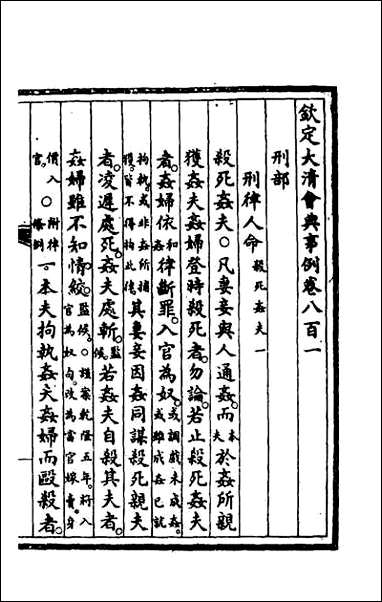 欽定大清會典事例卷八百一
刑部
刑律人命 殺死姦夫一
殺死姦夫○凡妻妾與人通姦而本夫於姦所親
獲姦夫姦婦登時殺死者勿論若止殺死姦夫
者姦婦依和姦律斷罪入官為奴或調戲未成姦或雖成姦已就
拘執或非姦所捕獲皆不得拘此律其妻妾因姦同謀殺死親夫
者凌遲處死姦夫處斬監候若姦夫自殺其夫者
姦婦雖不知情絞監候○謹案乾隆五年將入官為奴句改為當官嫁賣身
價入官○附律條例一本夫拘執姦夫姦婦而毆殺者